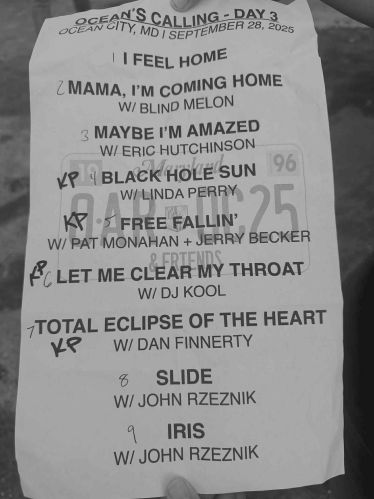 OCEAN'S CALLING - DAY 3
OCEAN CITY, MD | SEPTEMBER 28, 2025
1 I FEEL HOME
2 MAMA, I'M COMING HOME
W/ BLIND MELON
3 MAYBE I'M AMAZED
W/ ERIC HUTCHINSON
19 Maryland 96
KP 4 BLACK HOLE SUN
W/ LINDA PERRY
OAR OC25
KP 5 FREE FALLIN'
W/ PAT MONAHAN + JERRY BECKER
& FRIENDS
KP 6 LET ME CLEAR MY THROAT
W/ DJ KOOL
7 TOTAL ECLIPSE OF THE HEART
KP W/ DAN FINNERTY
8 SLIDE
W/ JOHN RZEZNIK
9 IRIS
W/ JOHN RZEZNIK